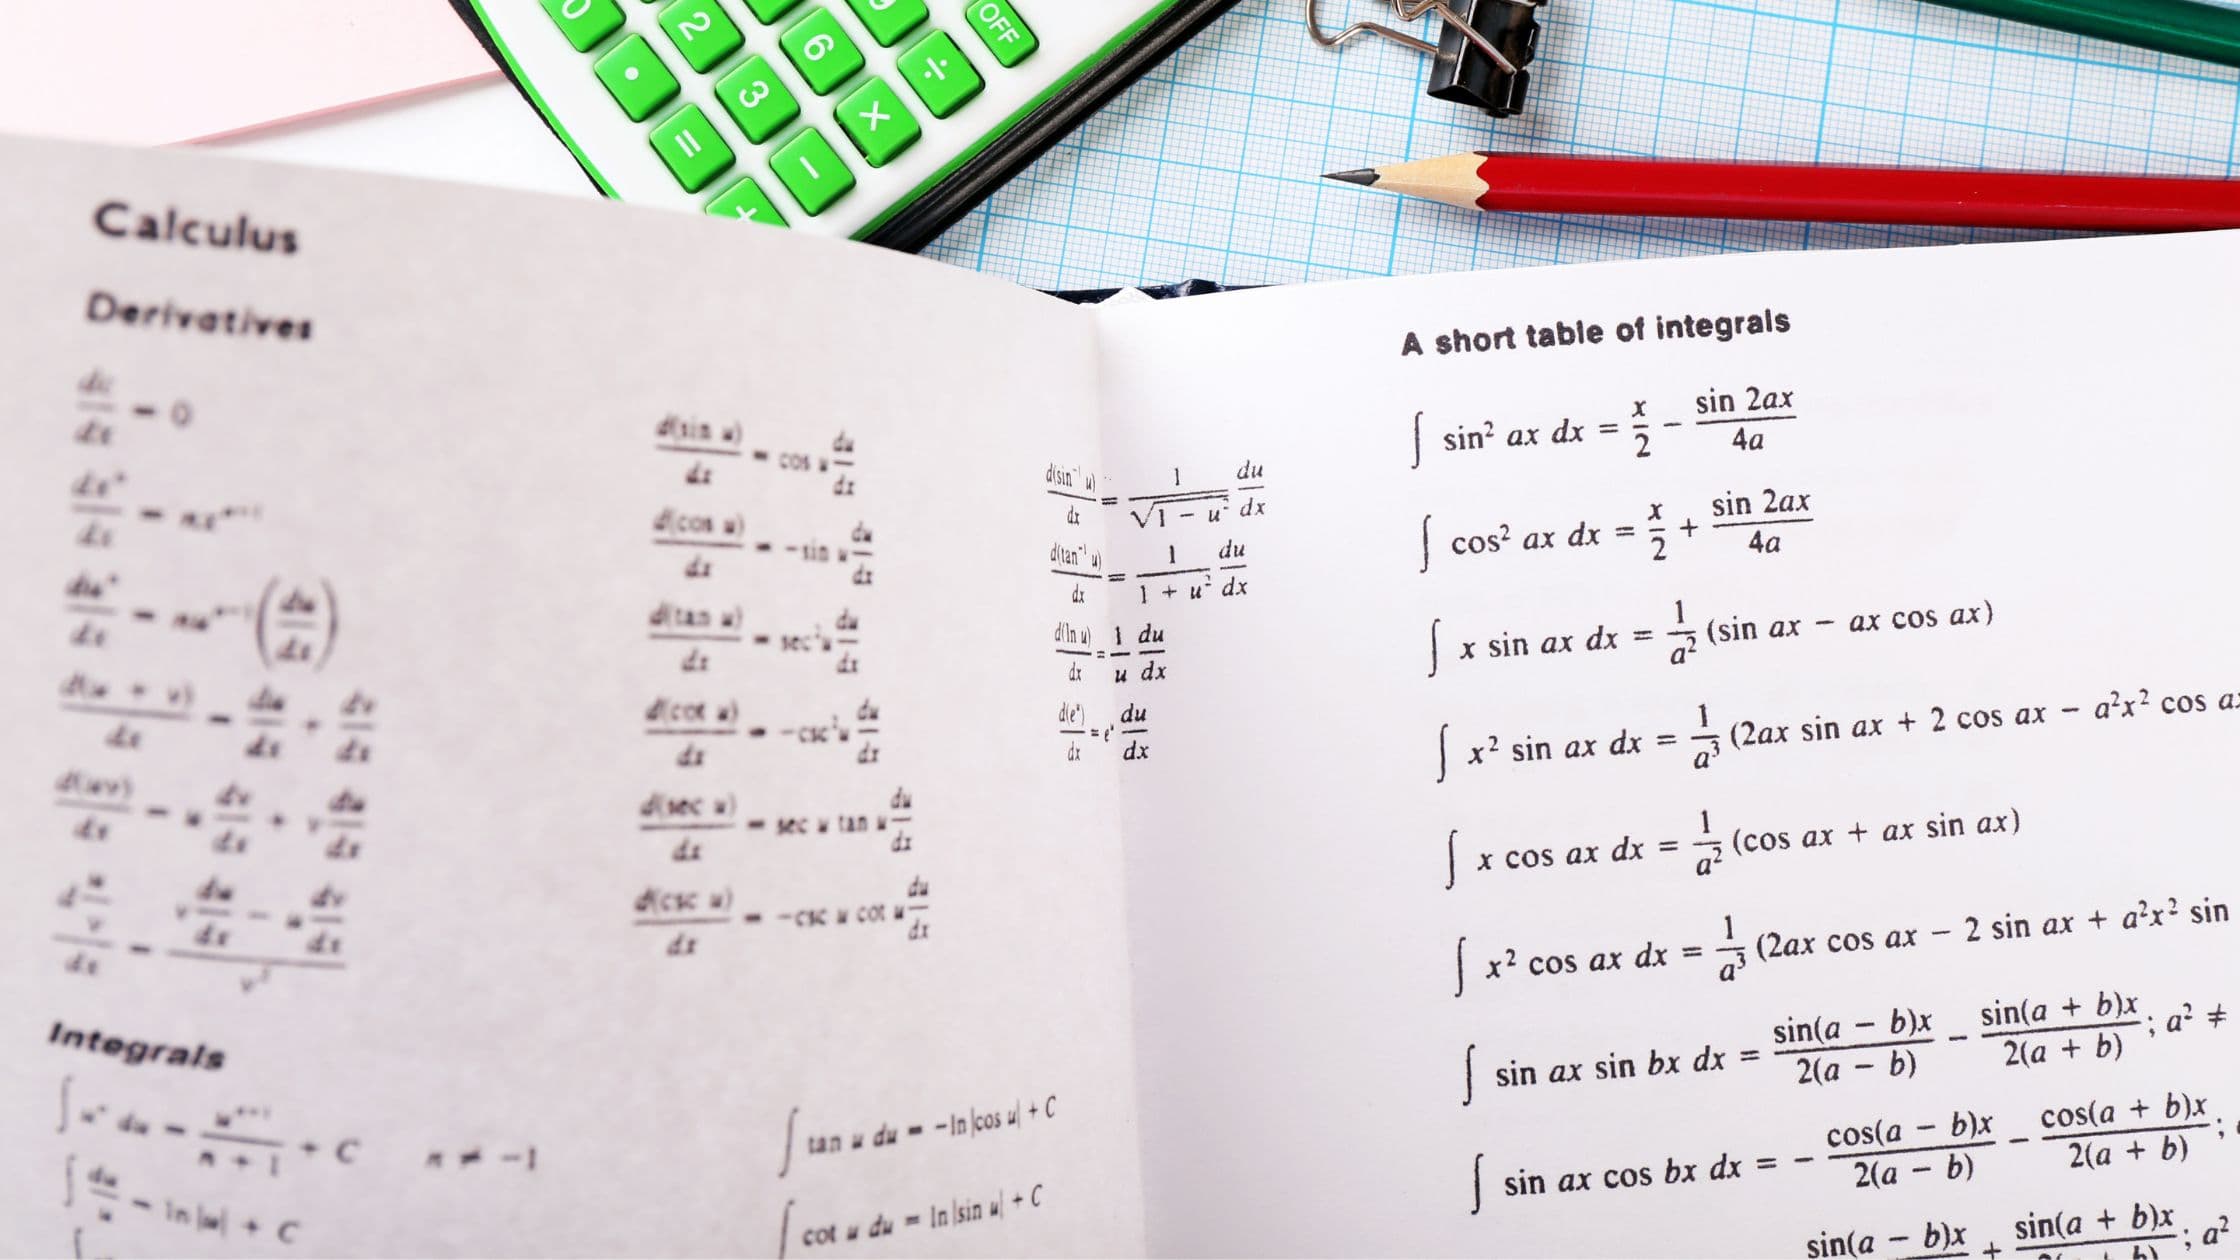 0
2
6
÷
OFF
.
3
×
=
−
+
Calculus
Derivatives
dc/dx = 0
dxⁿ/dx = nxⁿ⁻¹
duⁿ/dx = nuⁿ⁻¹(du/dx)
d(u + v)/dx = du/dx + dv/dx
d(uv)/dx = u dv/dx + v du/dx
d(u/v)/dx = (v du/dx − u dv/dx)/v²
d(sin u)/dx = cos u du/dx
d(cos u)/dx = −sin u du/dx
d(tan u)/dx = sec² u du/dx
d(cot u)/dx = −csc² u du/dx
d(sec u)/dx = sec u tan u du/dx
d(csc u)/dx = −csc u cot u du/dx
d(sin⁻¹ u)/dx = 1/√(1 − u²) du/dx
d(tan⁻¹ u)/dx = 1/(1 + u²) du/dx
d(ln u)/dx = 1/u du/dx
d(eᵘ)/dx = eᵘ du/dx
Integrals
∫ uⁿ du = uⁿ⁺¹/(n + 1) + C n ≠ −1
∫ du/u = ln |u| + C
∫ tan u du = −ln |cos u| + C
∫ cot u du = ln |sin u| + C
A short table of integrals
∫ sin² ax dx = x/2 − sin 2ax/4a
∫ cos² ax dx = x/2 + sin 2ax/4a
∫ x sin ax dx = 1/a² (sin ax − ax cos ax)
∫ x² sin ax dx = 1/a³ (2ax sin ax + 2 cos ax − a²x² cos a
∫ x cos ax dx = 1/a² (cos ax + ax sin ax)
∫ x² cos ax dx = 1/a³ (2ax cos ax − 2 sin ax + a²x² sin
∫ sin ax sin bx dx = sin(a − b)x/2(a − b) − sin(a + b)x/2(a + b); a² ≠
∫ sin ax cos bx dx = − cos(a − b)x/2(a − b) − cos(a + b)x/2(a + b);
sin(a − b)x + sin(a + b)x; a²